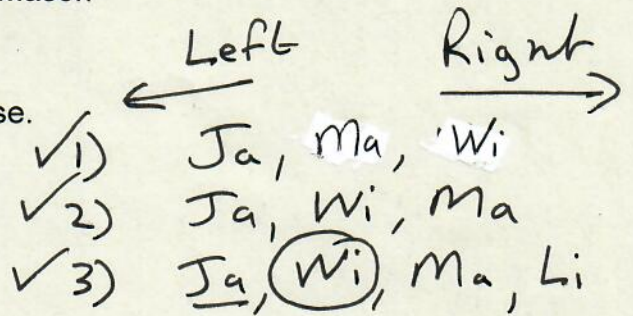 Left Right
se.
✓1) Ja, Ma, Wi
✓2) Ja, Wi, Ma
✓3) Ja, Wi, Ma, Li